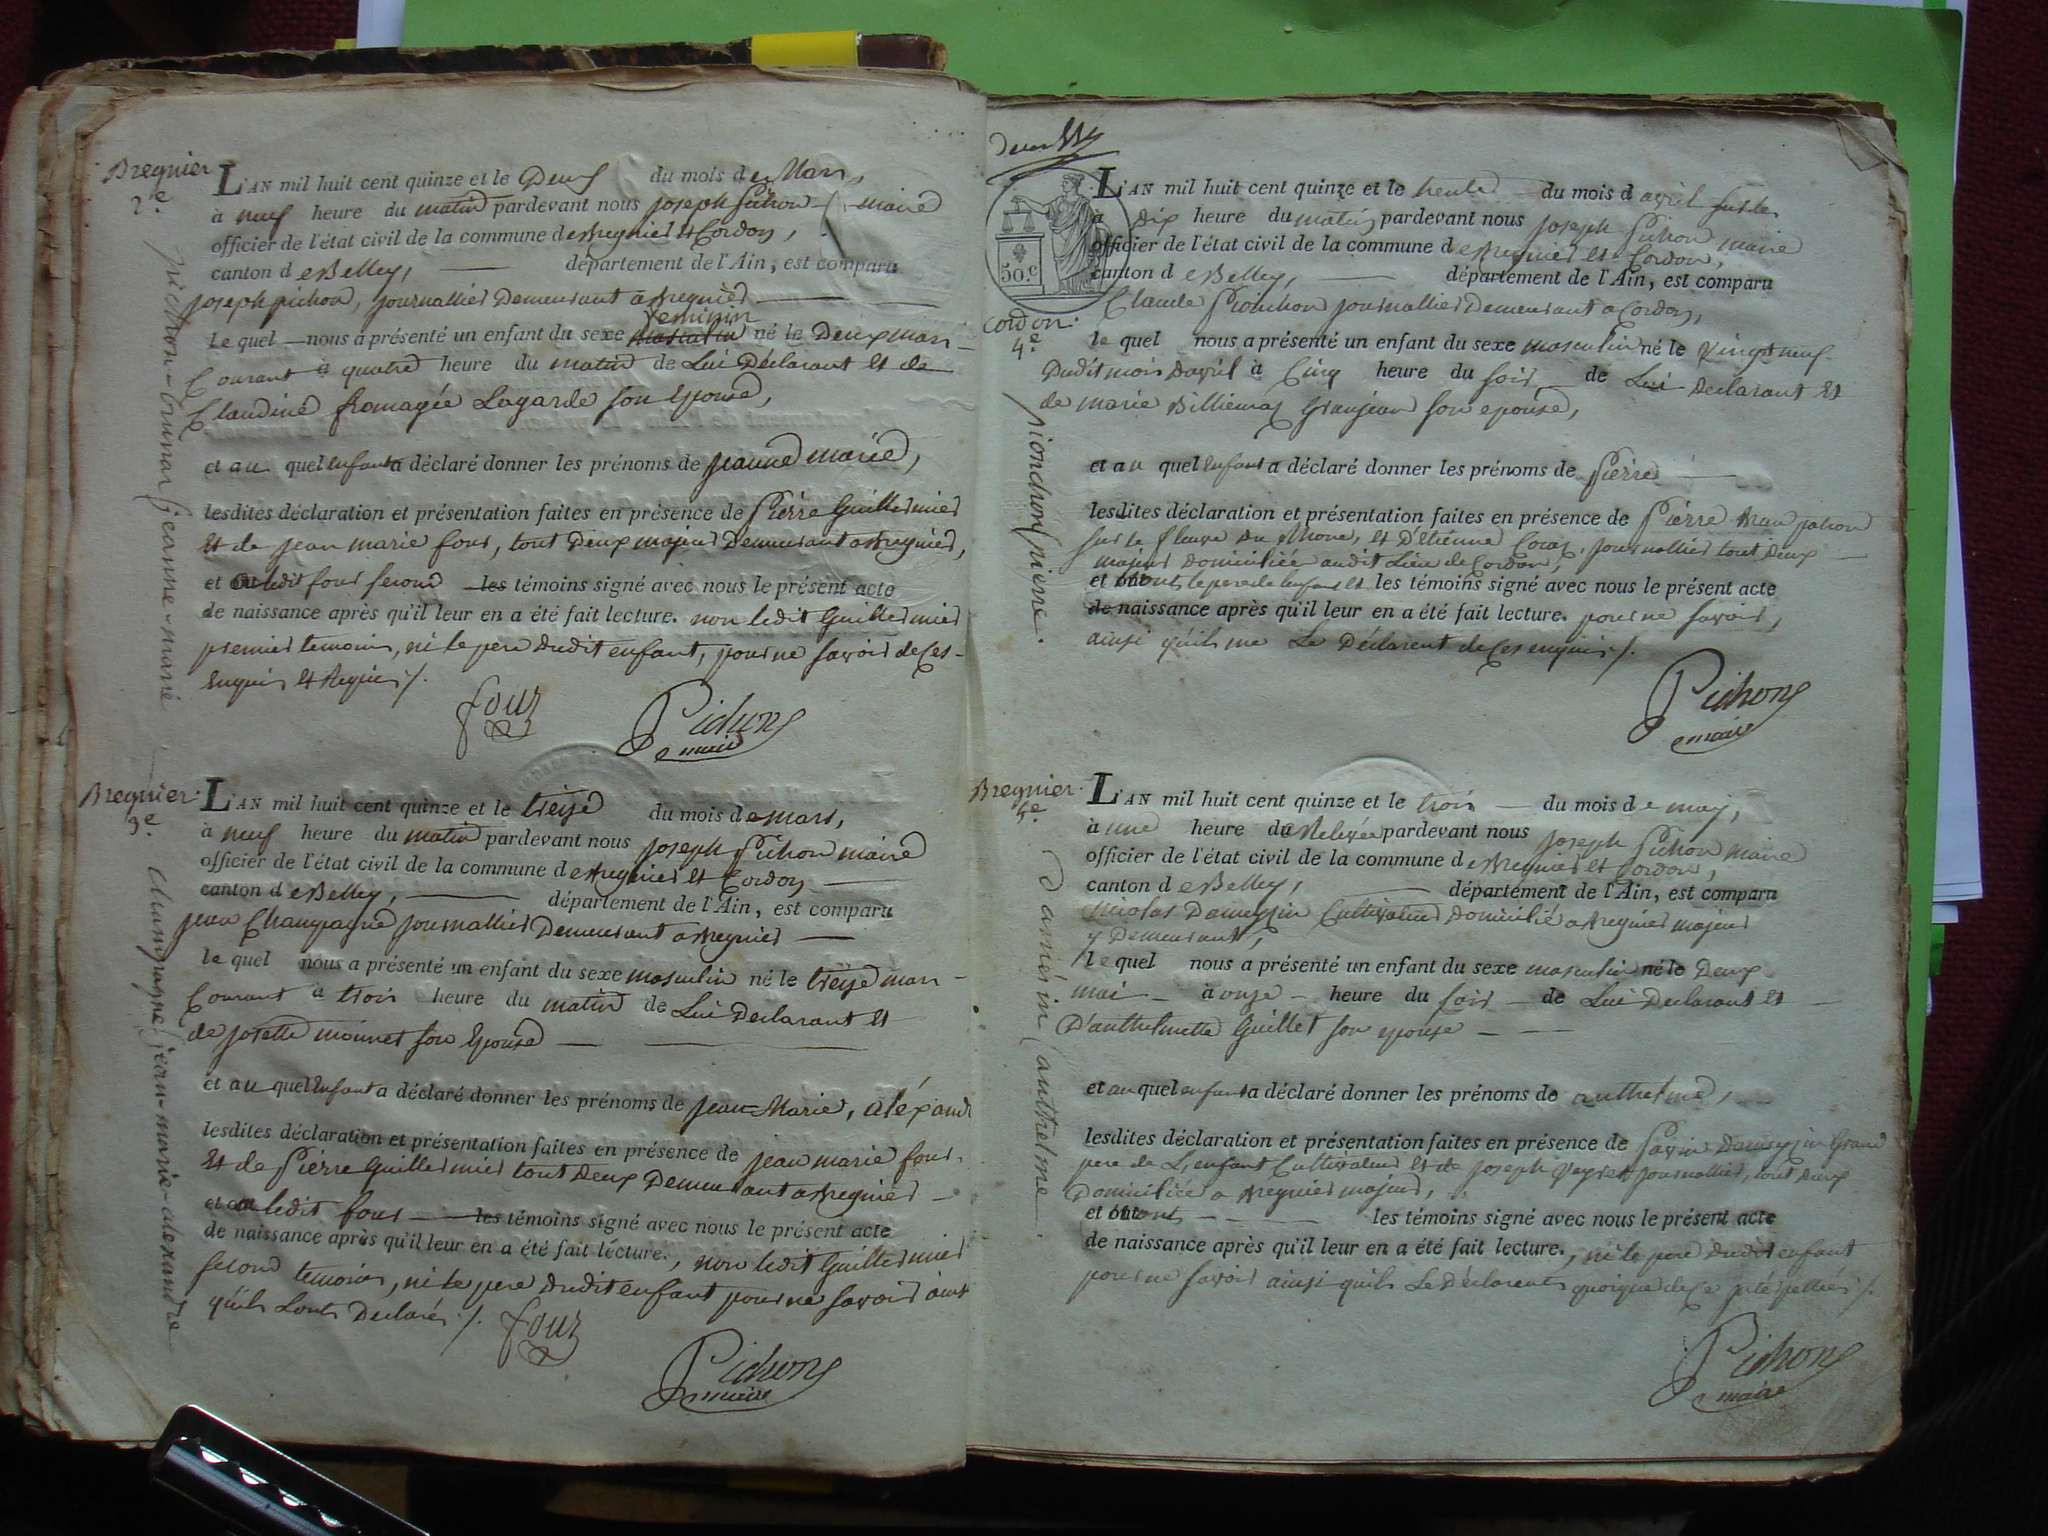 Bregnier
2e.
pichon-brunar jeanne-marie
L'AN mil huit cent quinze et le Deux du mois de Mars,
à neuf heure du matin pardevant nous joseph Pichon maire
officier de l'état civil de la commune de Bregnier et Cordon,
canton de Belley, département de l'Ain, est comparu
joseph pichon, journallier Demeurant a Bregnier
feminin
Le quel nous a présenté un enfant du sexe masculin né le Deux mars
Courant a quatre heure du matin de Lui Déclarant et de
Claudine fromagée Lagarde son Epouse,
et au quel enfant a déclaré donner les prénoms de jeanne marie,
lesdites déclaration et présentation faites en présence de Pierre Guillermier
et de jean marie four, tout Deux majeur Demeurant a Bregnier,
et ledit four second les témoins signé avec nous le présent acte
de naissance après qu'il leur en a été fait lecture. non ledit Guillermier
premier temoin, ni le pere dudit enfant, pour ne savoir de Ces
Enquis et Requis /.
four Pichon
maire
Bregnier
3e.
champagne jean-marie-alexandre
L'AN mil huit cent quinze et le treize du mois de mars,
à neuf heure du matin pardevant nous joseph Pichon maire
officier de l'état civil de la commune de Bregnier et Cordon
canton de Belley, département de l'Ain, est comparu
jean Champagne journallier Demeurant a Bregnier
le quel nous a présenté un enfant du sexe masculin né le treize mars
Courant à trois heure du matin de Lui Declarant et
de josette monnet son Epouse
et au quel enfant a déclaré donner les prénoms de jean Marie, aléxand
lesdites déclaration et présentation faites en présence de jean marie four
et de Pierre Guillermier tout Deux Demeurant a Bregnier
et ledit four les témoins signé avec nous le présent acte
de naissance après qu'il leur en a été fait lécture., non ledit Guillermier
second temoin, ni le pere dudit enfant pour ne savoir ainsi
qu'ils Lont Declaré /.
four
Pichon
maire
L'AN mil huit cent quinze et le trente du mois d avril
à dix heure du matin pardevant nous joseph Pichon maire
officier de l'état civil de la commune de Bregnier et Cordon,
canton de Belley, département de l'Ain, est comparu
50.c
Claude Pionchon journallier Demeurant a Cordon,
Cordon.
4e.
pionchon pierre.
le quel nous a présenté un enfant du sexe masculin né le vingt neuf
Dudit mois Davril à Cinq heure du soir de Lui Declarant et
de marie Billiemaz Granjean son epouse,
et au quel enfant a déclaré donner les prénoms de Pierre
lesdites déclaration et présentation faites en présence de Pierre
sur le fleuve du Rhone, et D'étienne journallier tout Deux
majeur domiciliée audit Lieu de Cordon,
et le pere de lenfant et les témoins signé avec nous le présent acte
de naissance après qu'il leur en a été fait lecture. pour ne savoir,
ainsi qu'ils me Le Déclarent de Ces enquis /.
Pichon
maire
Bregnier
5e.
Daméxin (anthelme.
L'AN mil huit cent quinze et le trois du mois de may,
à une heure du Relevée pardevant nous joseph Pichon maire
officier de l'état civil de la commune de Bregnier et Cordon,
canton de Belley, département de l'Ain, est comparu
Nicolas Cultivateur domicilié a Bregnier majeur
y Demeurant,
le quel nous a présenté un enfant du sexe masculin né le Deux
mai à onze heure du soir de Lui Declarant et
D'anthelmette Guillet son epouse
et au quel enfant a déclaré donner les prénoms de anthelme,
lesdites déclaration et présentation faites en présence de Grand
pere de L'enfant Cultivateur et de joseph journallier, tout Deux
Domiciliée a Bregnier majeur,
et ont les témoins signé avec nous le présent acte
de naissance après qu'il leur en a été fait lecture., ni le pere dudit enfant
pour ne savoir ainsi qu'ils Le Déclarent
Pichon
maire